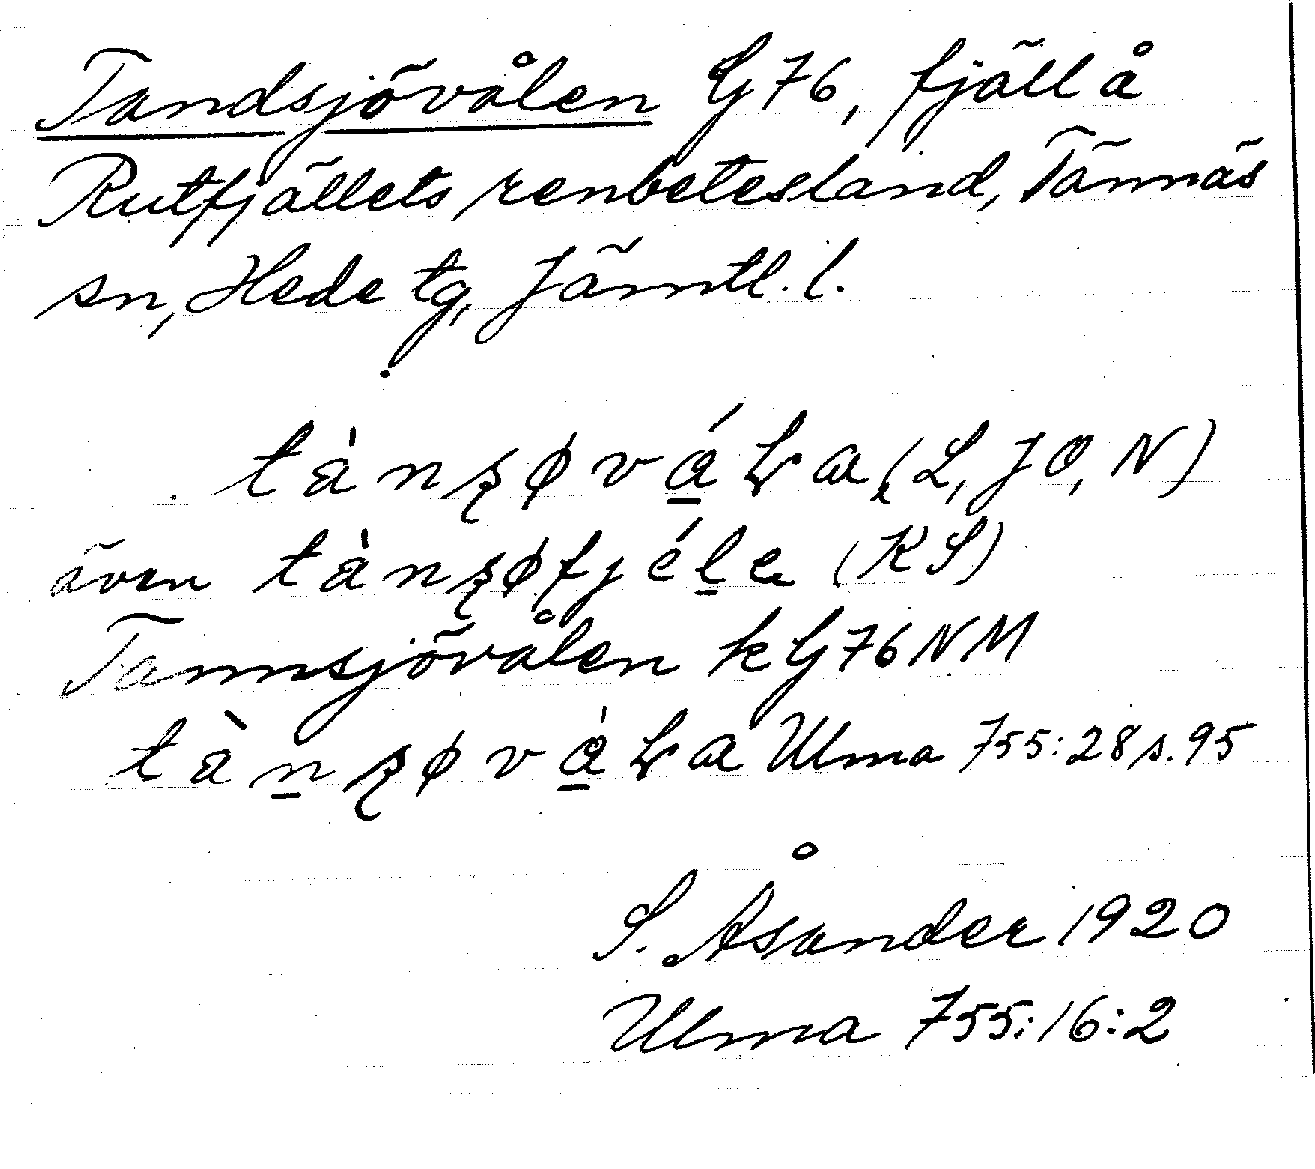 Tandsjövålen G 76, fjäll å
Rutfjällets renbetesland, Tännäs
sn, Hede tg, Jämtl. l.
tànʂøváɽa (L, JO, N)
även tànʂøfjéle (KS)
Tannsjövålen k G 76 NM
tànʂøvàɽa Ulma 755:28 s. 95
S. Åsander 1920
Ulma 755:16:2